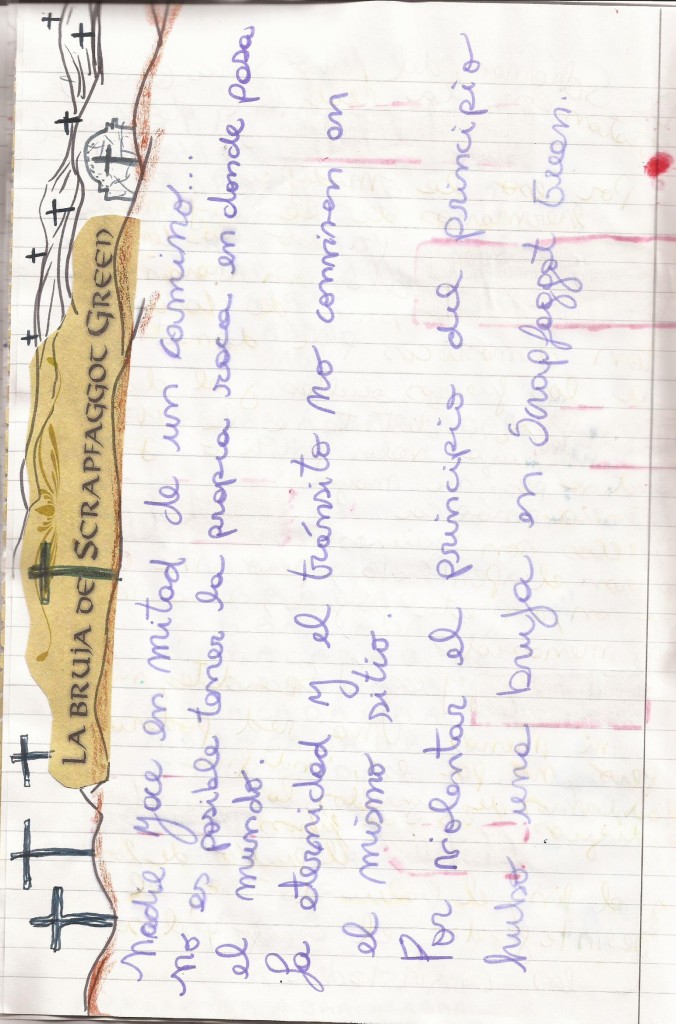 LA BRUJA DE SCRAPFAGGOT GREEN
Nadie yace en mitad de un camino...
No es posible tener la propia roca en donde posa
el mundo.
La eternidad y el tránsito no conviven en
el mismo sitio.
Por violentar el principio del principio
hubo una bruja en Scrapfaggot Green.